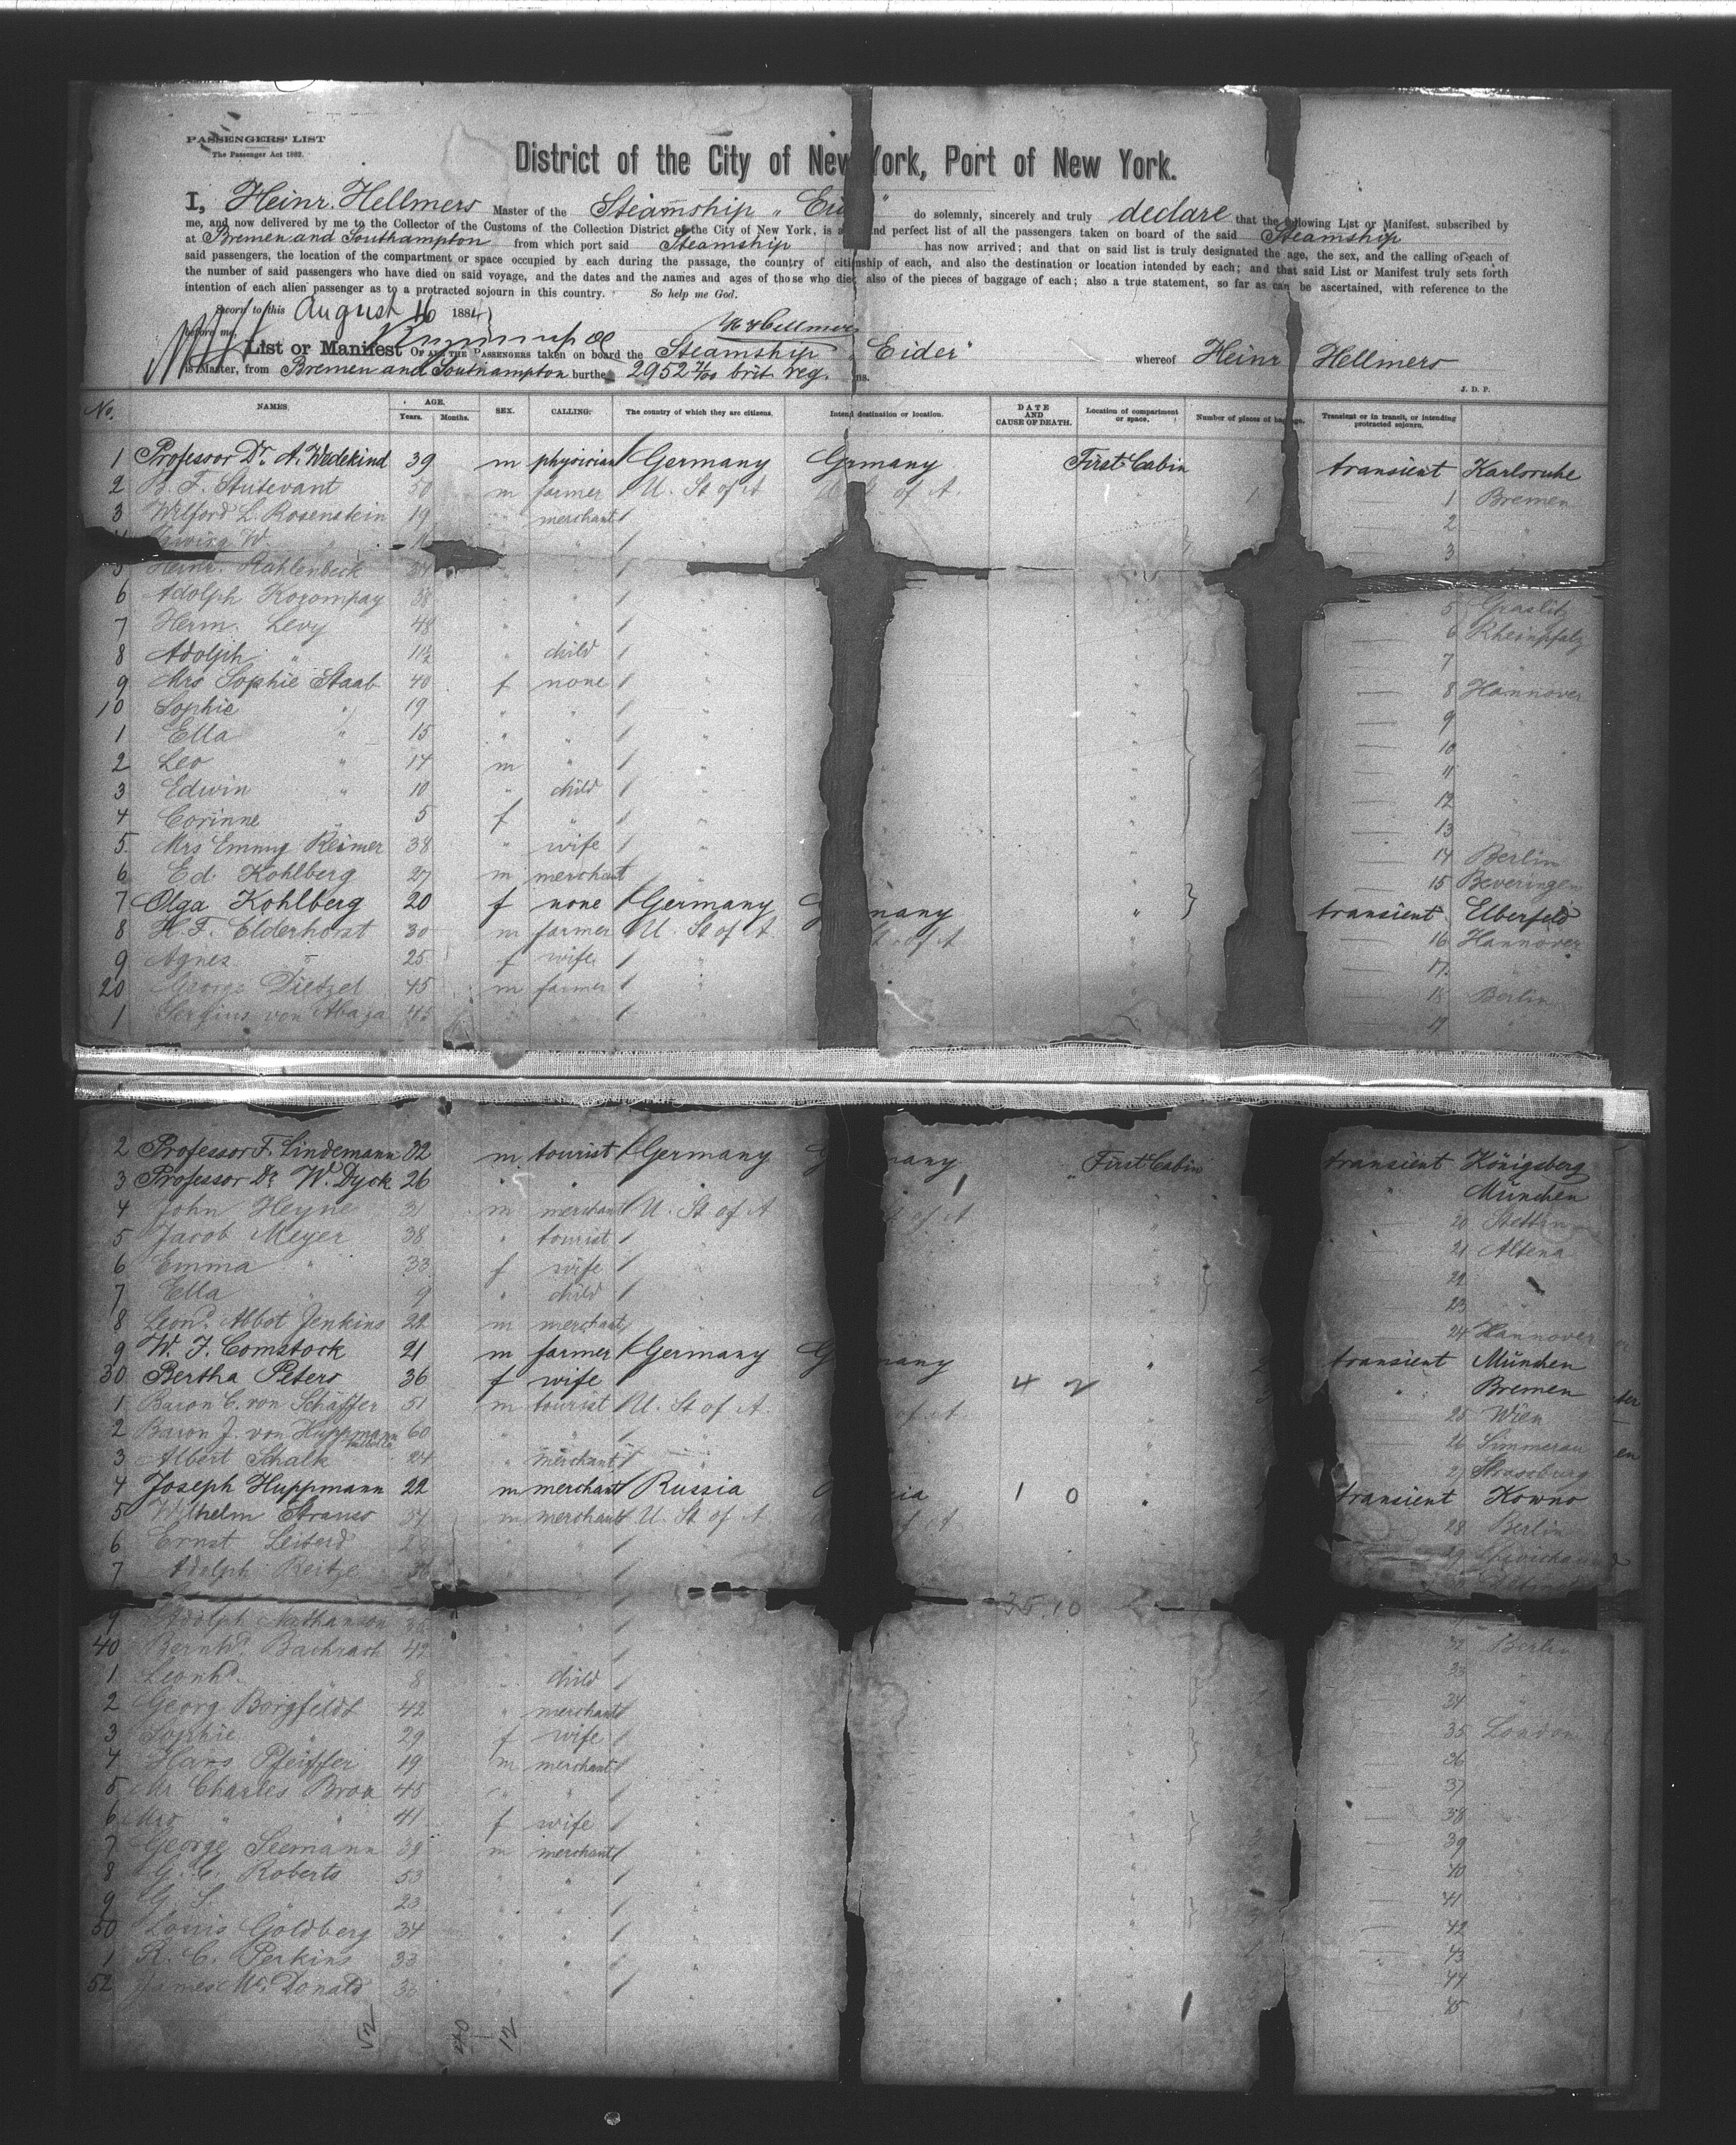 PASSENGERS' LIST
The Passenger Act 1882.
District of the City of New York, Port of New York.
I, Heinr. Hellmers Master of the Steamship " do solemnly, sincerely and truly declare that the following List or Manifest, subscribed by
me, and now delivered by me to the Collector of the Customs of the Collection District of the City of New York, is a and perfect list of all the passengers taken on board of the said Steamship
at Bremen and Southampton from which port said Steamship has now arrived; and that on said list is truly designated the age, the sex, and the calling of each of
said passengers, the location of the compartment or space occupied by each during the passage, the country of citizenship of each, and also the destination or location intended by each; and that said List or Manifest truly sets forth
the number of said passengers who have died on said voyage, and the dates and the names and ages of those who died also of the pieces of baggage of each; also a true statement, so far as can be ascertained, with reference to the
intention of each alien passenger as to a protracted sojourn in this country. So help me God.
Sworn to this August 16 1884
before me, Hellmers
List or Manifest OF ALL THE PASSENGERS taken on board the Steamship "Eider" whereof Heinr Hellmers
is Master, from Bremen and Southampton burthen 2952 brit reg. ns.
J. D. P.
No. NAMES. AGE. Years. Months. SEX. CALLING. The country of which they are citizens. Intend destination or location. DATE AND CAUSE OF DEATH. Location of compartment or space. Number of pieces of baggage. Transient or in transit, or intending protracted sojourn.
1 Professor Dr. A. Wedekind 39 m physician Germany Grmany First Cabin transient Karlsruhe
2 B. F. Stutevant 50 m farmer U. St of A U. St of A. 1 — 1 Bremen
3 Wilford L. Rosenstein 19 " merchant " — 2 "
W. " — 3 "
5 Heinr. Rahlenbeck 34 " "
6 Adolph Kozompay 38 " " " — 5 Graslitz
7 Herm. Levy 48 " " " — 6 Rheinpfalz
8 Adolph " 11½ " child " — 7 "
9 Mrs Sophie Staab 40 f none " — 8 Hannover
10 Sophie " 19 " " " — 9 "
1 Ella " 15 " " " — 10 "
2 Leo " 14 m " " — 11 "
3 Edwin " 10 " child " — 12 "
4 Corinne " 5 f " " — 13
5 Mrs Emmy Reimer 38 " wife " — 14 Berlin
6 Ed. Kohlberg 27 m merchant " — 15 Beveringen
7 Olga Kohlberg 20 f none Germany G many " transient Elberfeld
8 H. F. Elderhorst 30 m farmer U. St of A. St. of A " — 16 Hannover
9 Agnes " 25 f wife " " — 17 "
20 George Dietzel 45 m farmer " " — 18 Berlin
1 Sergius von Abaza 45 " " " — 19 "
2 Professor F. Lindemann 32 m tourist Germany G many First Cabin transient Königsberg
3 Professor Dr W. Dyck 26 " " " " 1 " München
4 John Heyne 31 m merchant U. St of A St of A — 20 Stettin
5 Jacob Meyer 38 " tourist " " — 21 Altena
6 Emma " 33 f wife " " — 22 "
7 Ella " 9 " child " " — 23 "
8 Leond. Abbot Jenkins 22 m merchant " — 24 Hannover
9 W. F. Comstock 21 m farmer Germany G many " 2 transient München
30 Bertha Peters 36 f wife " 4 2 " Bremen
1 Baron C. von Schäffer 51 m tourist U. St of A. of A " — 25 Wien
2 Baron J. von Huppmann 60 " " " — 26 Simmerau
3 Albert Schalk 24 " merchant " — 27 Strassburg
4 Joseph Huppmann 22 m merchant Russia sia 1 0 " transient Kowno
5 Wilhelm Strauss 54 m merchant U. St of A of A — 28 Berlin
6 Ernst " " — 29
7 Adolph Reitze 36 " "
35.10
9 Adolph Nathanson " "
40 Bernhd. Bachrach 42 " " — 32 Berlin
1 Leonhd. " 8 " child — 33 "
2 Georg Borgfeldt 42 " merchant — 34 "
3 Sophie " 29 f wife — 35 London
4 Hans Pfeiffer 19 m merchant — 36 "
5 Mr Charles 45 " " — 37
6 Mrs " " 41 f wife — 38
7 George Seemann 39 m merchant — 39
8 G. C. Roberts 53 " " — 40
9 G. S. " 23 " " — 41
50 Louis Goldberg 34 " " — 42
1 R. C. Perkins 33 " " — 43
52 James McDonald " " — 44
45
52 40 12